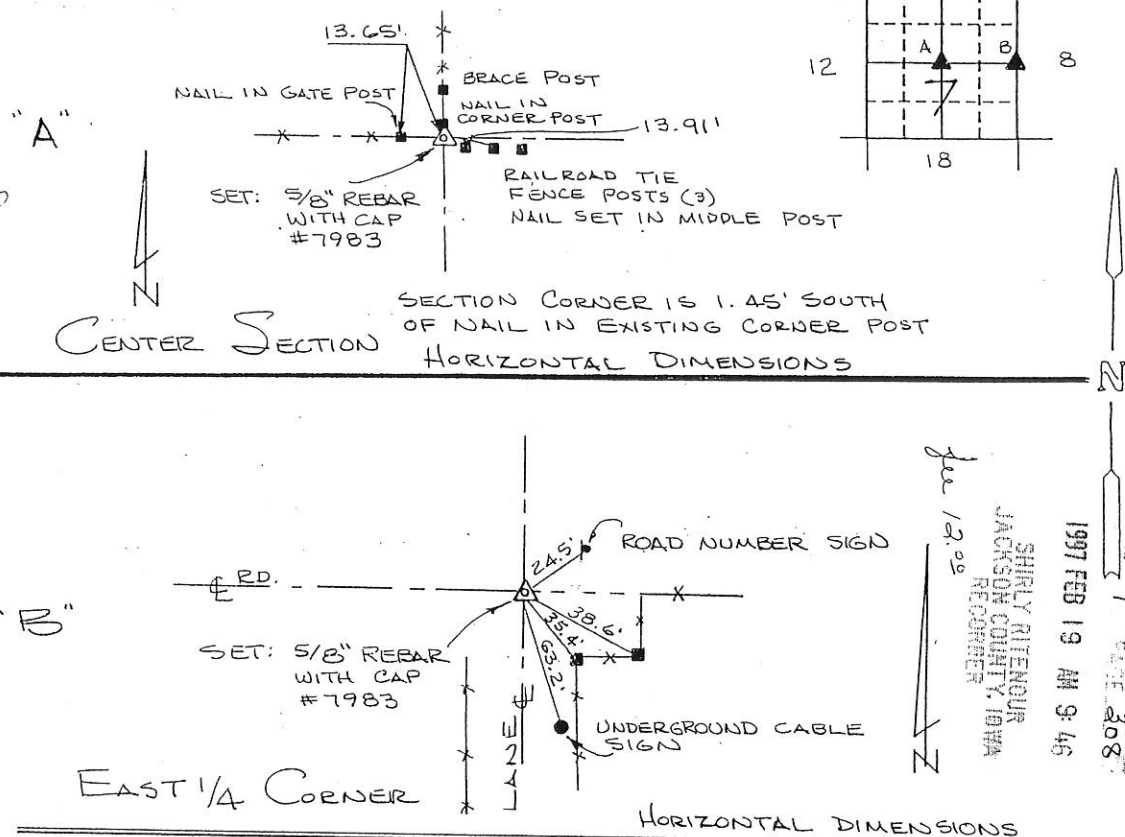 "A"
13.65'
NAIL IN GATE POST
BRACE POST
NAIL IN
CORNER POST
13.91'
RAILROAD TIE
FENCE POSTS (3)
NAIL SET IN MIDDLE POST
SET: 5/8" REBAR
WITH CAP
#7983
N
CENTER SECTION
SECTION CORNER IS 1.45' SOUTH
OF NAIL IN EXISTING CORNER POST
HORIZONTAL DIMENSIONS
12
A
B
8
7
18
N
"B"
℄ RD.
24.5'
ROAD NUMBER SIGN
38.6'
35.4'
63.2'
SET: 5/8" REBAR
WITH CAP
#7983
LANE ℄
UNDERGROUND CABLE
SIGN
EAST 1/4 CORNER
HORIZONTAL DIMENSIONS
N
12.00
SHIRLY RITENOUR
JACKSON COUNTY, IOWA
RECORDER
1997 FEB 19 AM 9:46
PAGE 308